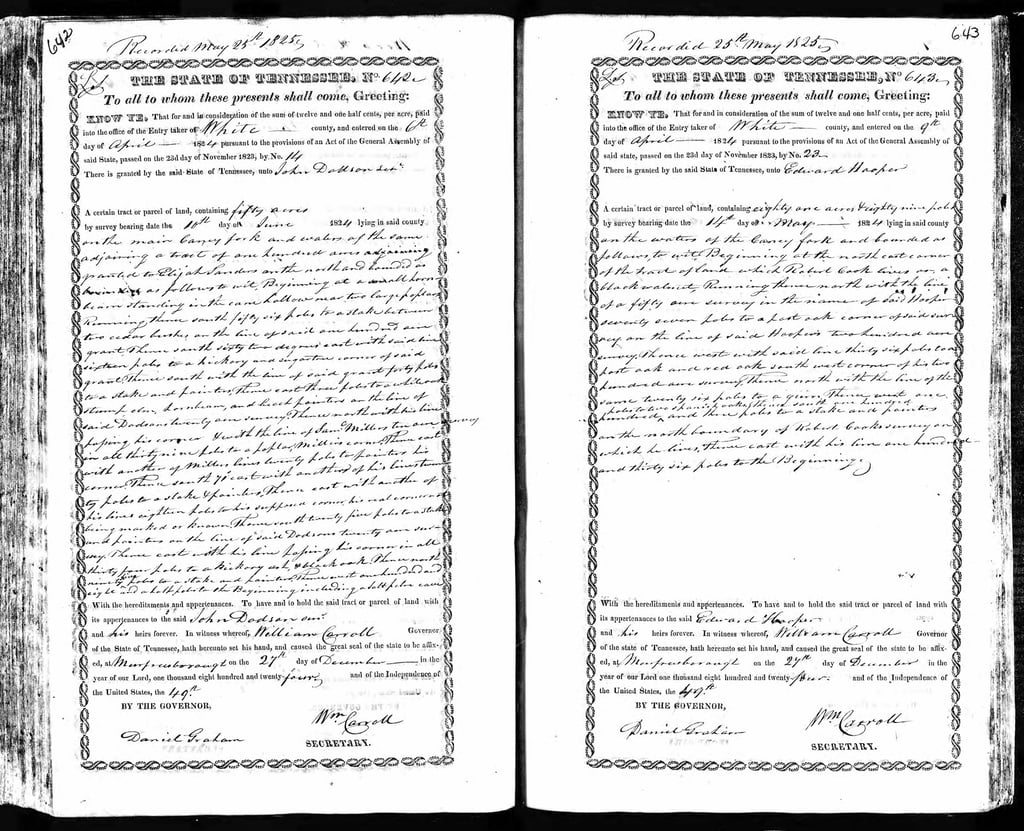 642
Recorded May 25th 1825
THE STATE OF TENNESSEE, No 642
To all to whom these presents shall come, Greeting:
KNOW YE, That for and in consideration of the sum of twelve and one half cents, per acre, paid
into the office of the Entry taker of White county, and entered on the 6th
day of April 1824 pursuant to the provisions of an Act of the General Assembly of
said State, passed on the 23d day of November 1823, by No. 14
There is granted by the said State of Tennessee, unto John Dodson senr
A certain tract or parcel of land, containing fifty acres
by survey bearing date the 10th day of June 1824 lying in said county
on the main Caney fork and waters of the same
adjoining a tract of one hundred acres adjoining
granted to Elijah Sanders on the north and bounded as
as follows to wit, Beginning at a small horn
beam standing in the cane hollow near two large poplars
Running thence south fifty six poles to a stake between
two cedar bushes on the line of said one hundred acre
grant. Thence south sixty two degrees east with said line
sixteen poles to a hickory and sugartree corner of said
grant, thence south with the line of said grant forty poles
to a stake and pointers, thence east three poles to a white oak
stump, elm, hornbeam, and beech pointers on the line of
said Dodsons twenty acre survey, Thence north with his line
passing his corner & with the line of Saml Millers ten acre survey
in all thirty nine poles to a poplar, Millers corner, Thence east
with another of Millers lines twenty poles to pointers his
corner, Thence south 75° east with another of his lines
ty poles to a stake & pointers, Thence east with another of
his lines eighteen poles to his supposed corner, his real corner not
being marked or known, Thence south twenty five poles to a stake
and pointers on the line of said Dodsons twenty acre sur-
vey, Thence east with his line passing his corner in all
thirty four poles to a hickory ash, & black oak, Thence north
ninety poles to a stake and pointers, Thence west one hundred and
eight and a half poles to the Beginning including a
With the hereditaments and appertenances. To have and to hold the said tract or parcel of land with
its appertenances to the said John Dodson senr
and his heirs forever. In witness whereof, William Carroll Governor
of the State of Tennessee, hath hereunto set his hand, and caused the great seal of the state to be affix-
ed, at Murfreesborough on the 27th day of December in the
year of our Lord, one thousand eight hundred and twenty-four and of the Independence of
the United States, the 49th
BY THE GOVERNOR,
Wm Carroll
Daniel Graham
SECRETARY.
643
Recorded 25th May 1825
THE STATE OF TENNESSEE, No 643
To all to whom these presents shall come, Greeting:
KNOW YE, That for and in consideration of the sum of twelve and one half cents, per acre, paid
into the office of the Entry taker of White county, and entered on the 9th
day of April 1824 pursuant to the provisions of an Act of the General Assembly of
said state, passed on the 23d day of November 1823, by No. 23
There is granted by the said State of Tennessee, unto Edward Hooper
A certain tract or parcel of land, containing eighty one acres & eighty nine poles
by survey bearing date the 14th day of May 1824 lying in said county
on the waters of the Caney fork and bounded as
follows, to wit, Beginning at the north east corner
of the tract of land which Robert Cook lives on, a
black walnut, Running thence north with the line
of a fifty acre survey in the name of said Hooper
seventy seven poles to a post oak corner of said surv
ey on the line of said Hoopers two hundred acre
survey, Thence west with said line thirty six poles to a
post oak and red oak south west corner of his two
hundred acre survey, thence north with the line of the
same twenty six poles to a gum, Thence west one
hundred, and three poles to a stake and pointers
on the north boundary of Robert Cooks survey on
which he lives, thence east with his line one hundred
and thirty six poles to the Beginning
With the hereditaments and appertenances. To have and to hold the said tract or parcel of land with
its appertenances to the said Edward Hooper
and his heirs forever. In witness whereof, William Carroll Governor
of the state of Tennessee, hath hereunto set his hand, and caused the great seal of the state to be affix-
ed, at Murfreesborough on the 27th day of December in the
year of our Lord, one thousand eight hundred and twenty-four and of the Independence of
the United States, the 49th
BY THE GOVERNOR,
Wm Carroll
Daniel Graham
SECRETARY.